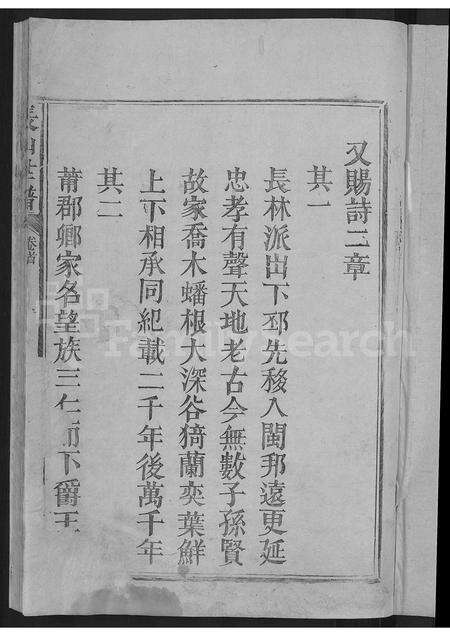 又賜詩二章
其一
長林派出下邳先移入閩邦遠更延
忠孝有聲天地老古今無數子孫賢
故家喬木蟠根大深谷猗蘭奕葉鮮
上下相承同紀載二千年後萬千年
其二
莆郡卿家名望族三仁而下爵王
長山世譜 卷首
FamilySearch